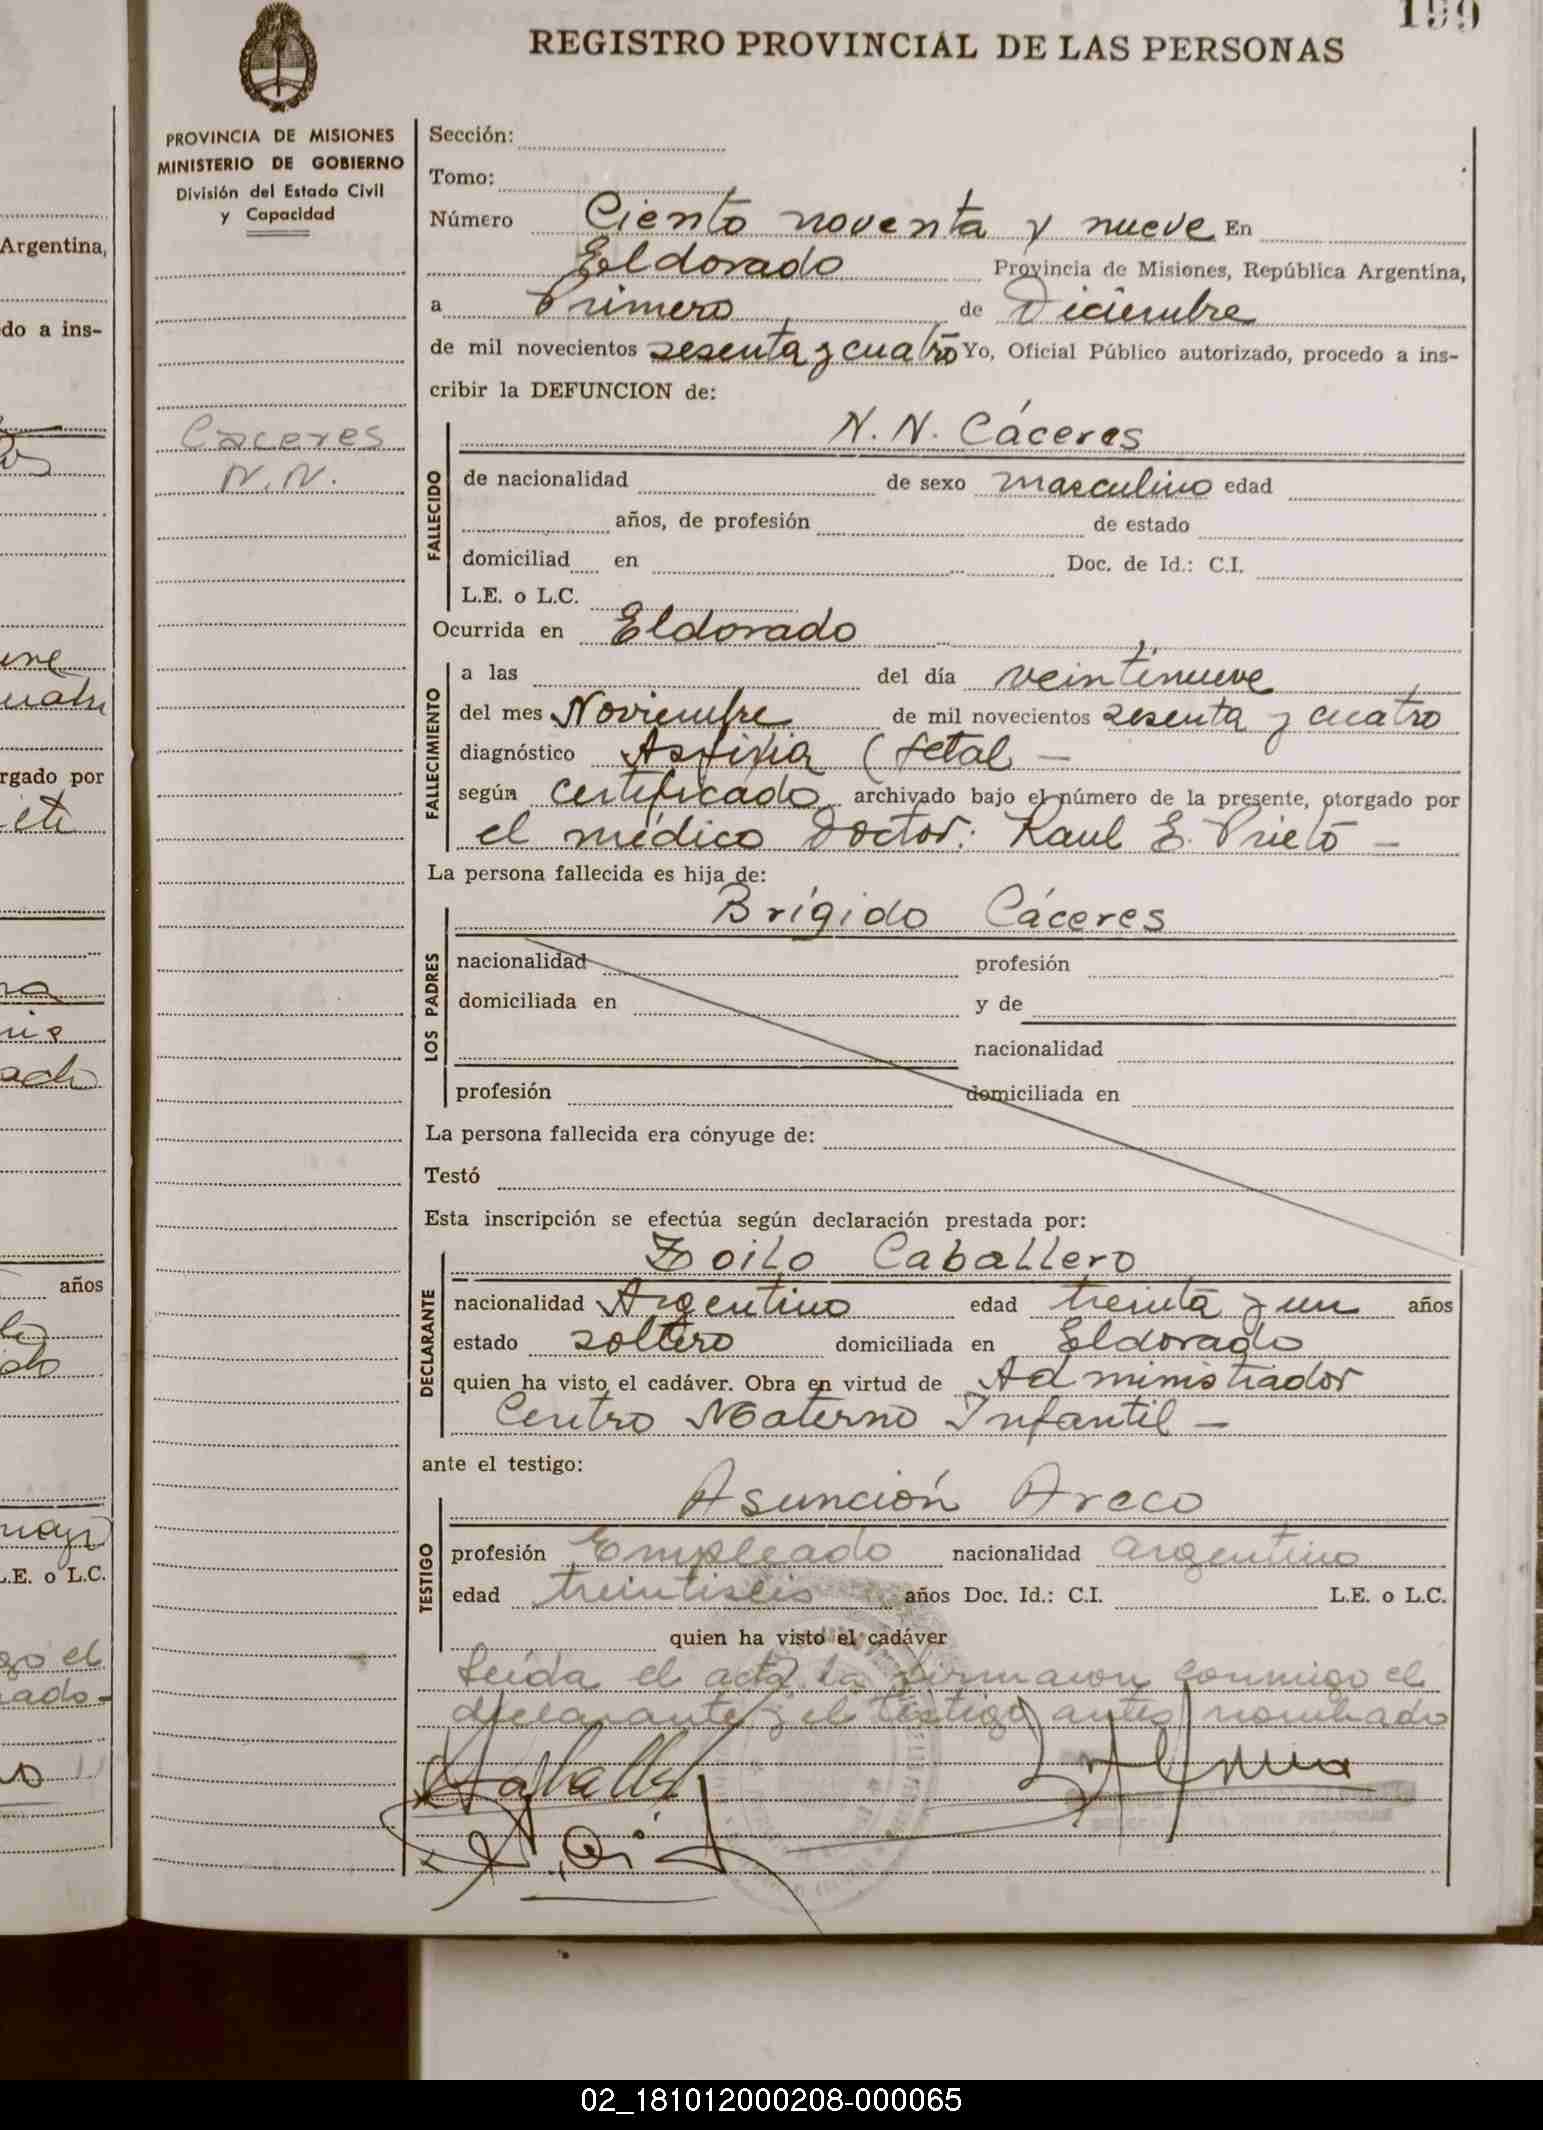 199
REGISTRO PROVINCIAL DE LAS PERSONAS
PROVINCIA DE MISIONES
MINISTERIO DE GOBIERNO
División del Estado Civil
y Capacidad
Caceres
N.N.
Sección:
Tomo:
Número Ciento noventa y nueve En
Eldorado Provincia de Misiones, República Argentina,
a Primero de Diciembre
de mil novecientos sesenta y cuatro Yo, Oficial Público autorizado, procedo a ins-
cribir la DEFUNCION de:
FALLECIDO
N. N. Cáceres
de nacionalidad de sexo masculino edad
años, de profesión de estado
domiciliad en Doc. de Id.: C.I.
L.E. o L.C.
Ocurrida en Eldorado
FALLECIMIENTO
a las del día veintinueve
del mes Noviembre de mil novecientos sesenta y cuatro
diagnóstico Asfixia (fetal —
según certificado archivado bajo el número de la presente, otorgado por
el médico Doctor: Raul E. Prieto —
La persona fallecida es hija de:
LOS PADRES
Brígido Cáceres
nacionalidad profesión
domiciliada en y de
nacionalidad
profesión domiciliada en
La persona fallecida era cónyuge de:
Testó
Esta inscripción se efectúa según declaración prestada por:
DECLARANTE
Zoilo Caballero
nacionalidad Argentino edad treinta y un años
estado soltero domiciliada en Eldorado
quien ha visto el cadáver. Obra en virtud de Administrador
Centro Materno Infantil —
ante el testigo:
TESTIGO
Asunción Areco
profesión Empleado nacionalidad argentino
edad treintiseis años Doc. Id.: C.I. L.E. o L.C.
quien ha visto el cadáver
Leída el acta la firmaron conmigo el
declarante y el testigo antes nombrado
Argentina,
do a ins-
rgado por
años
L.E. o L.C.
02_181012000208-000065